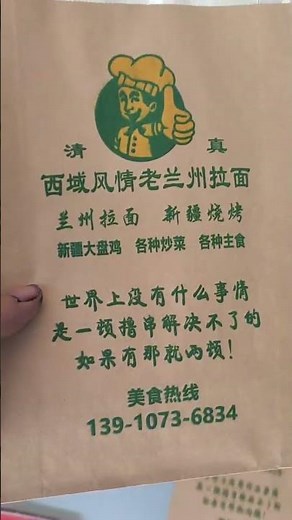 清 真
西域风情老兰州拉面
兰州拉面 新疆烧烤
新疆大盘鸡 各种炒菜 各种主食
世界上没有什么事情
是一顿撸串解决不了的
如果有那就两顿!
美食热线
139-1073-6834